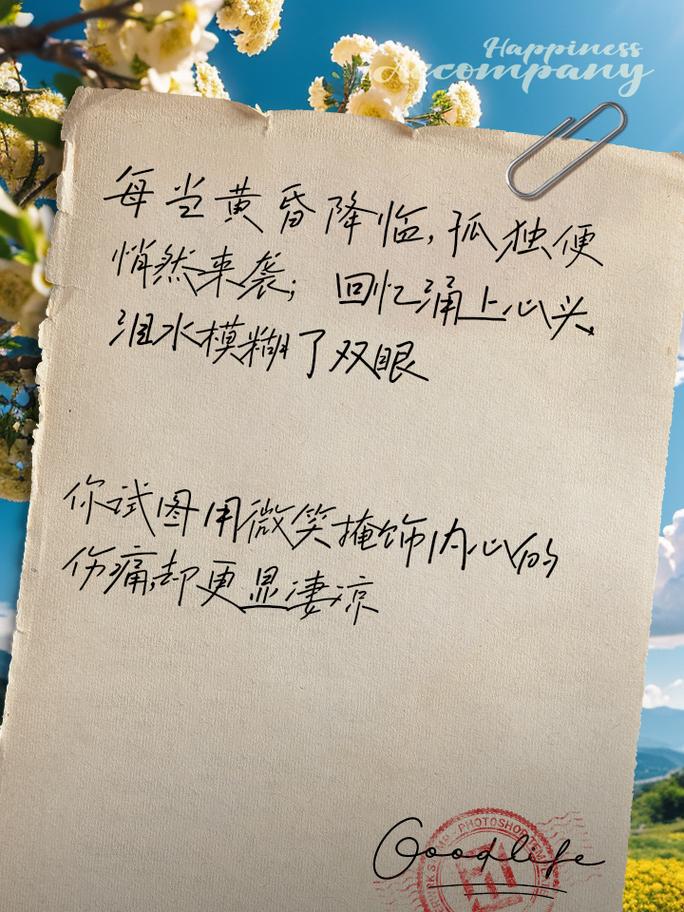 Happiness
Accompany
每当黄昏降临,孤独便
悄然来袭; 回忆涌上心头,
泪水模糊了双眼
你试图用微笑掩饰内心的
伤痛,却更显凄凉
PHOTOSHOP
Goodlife